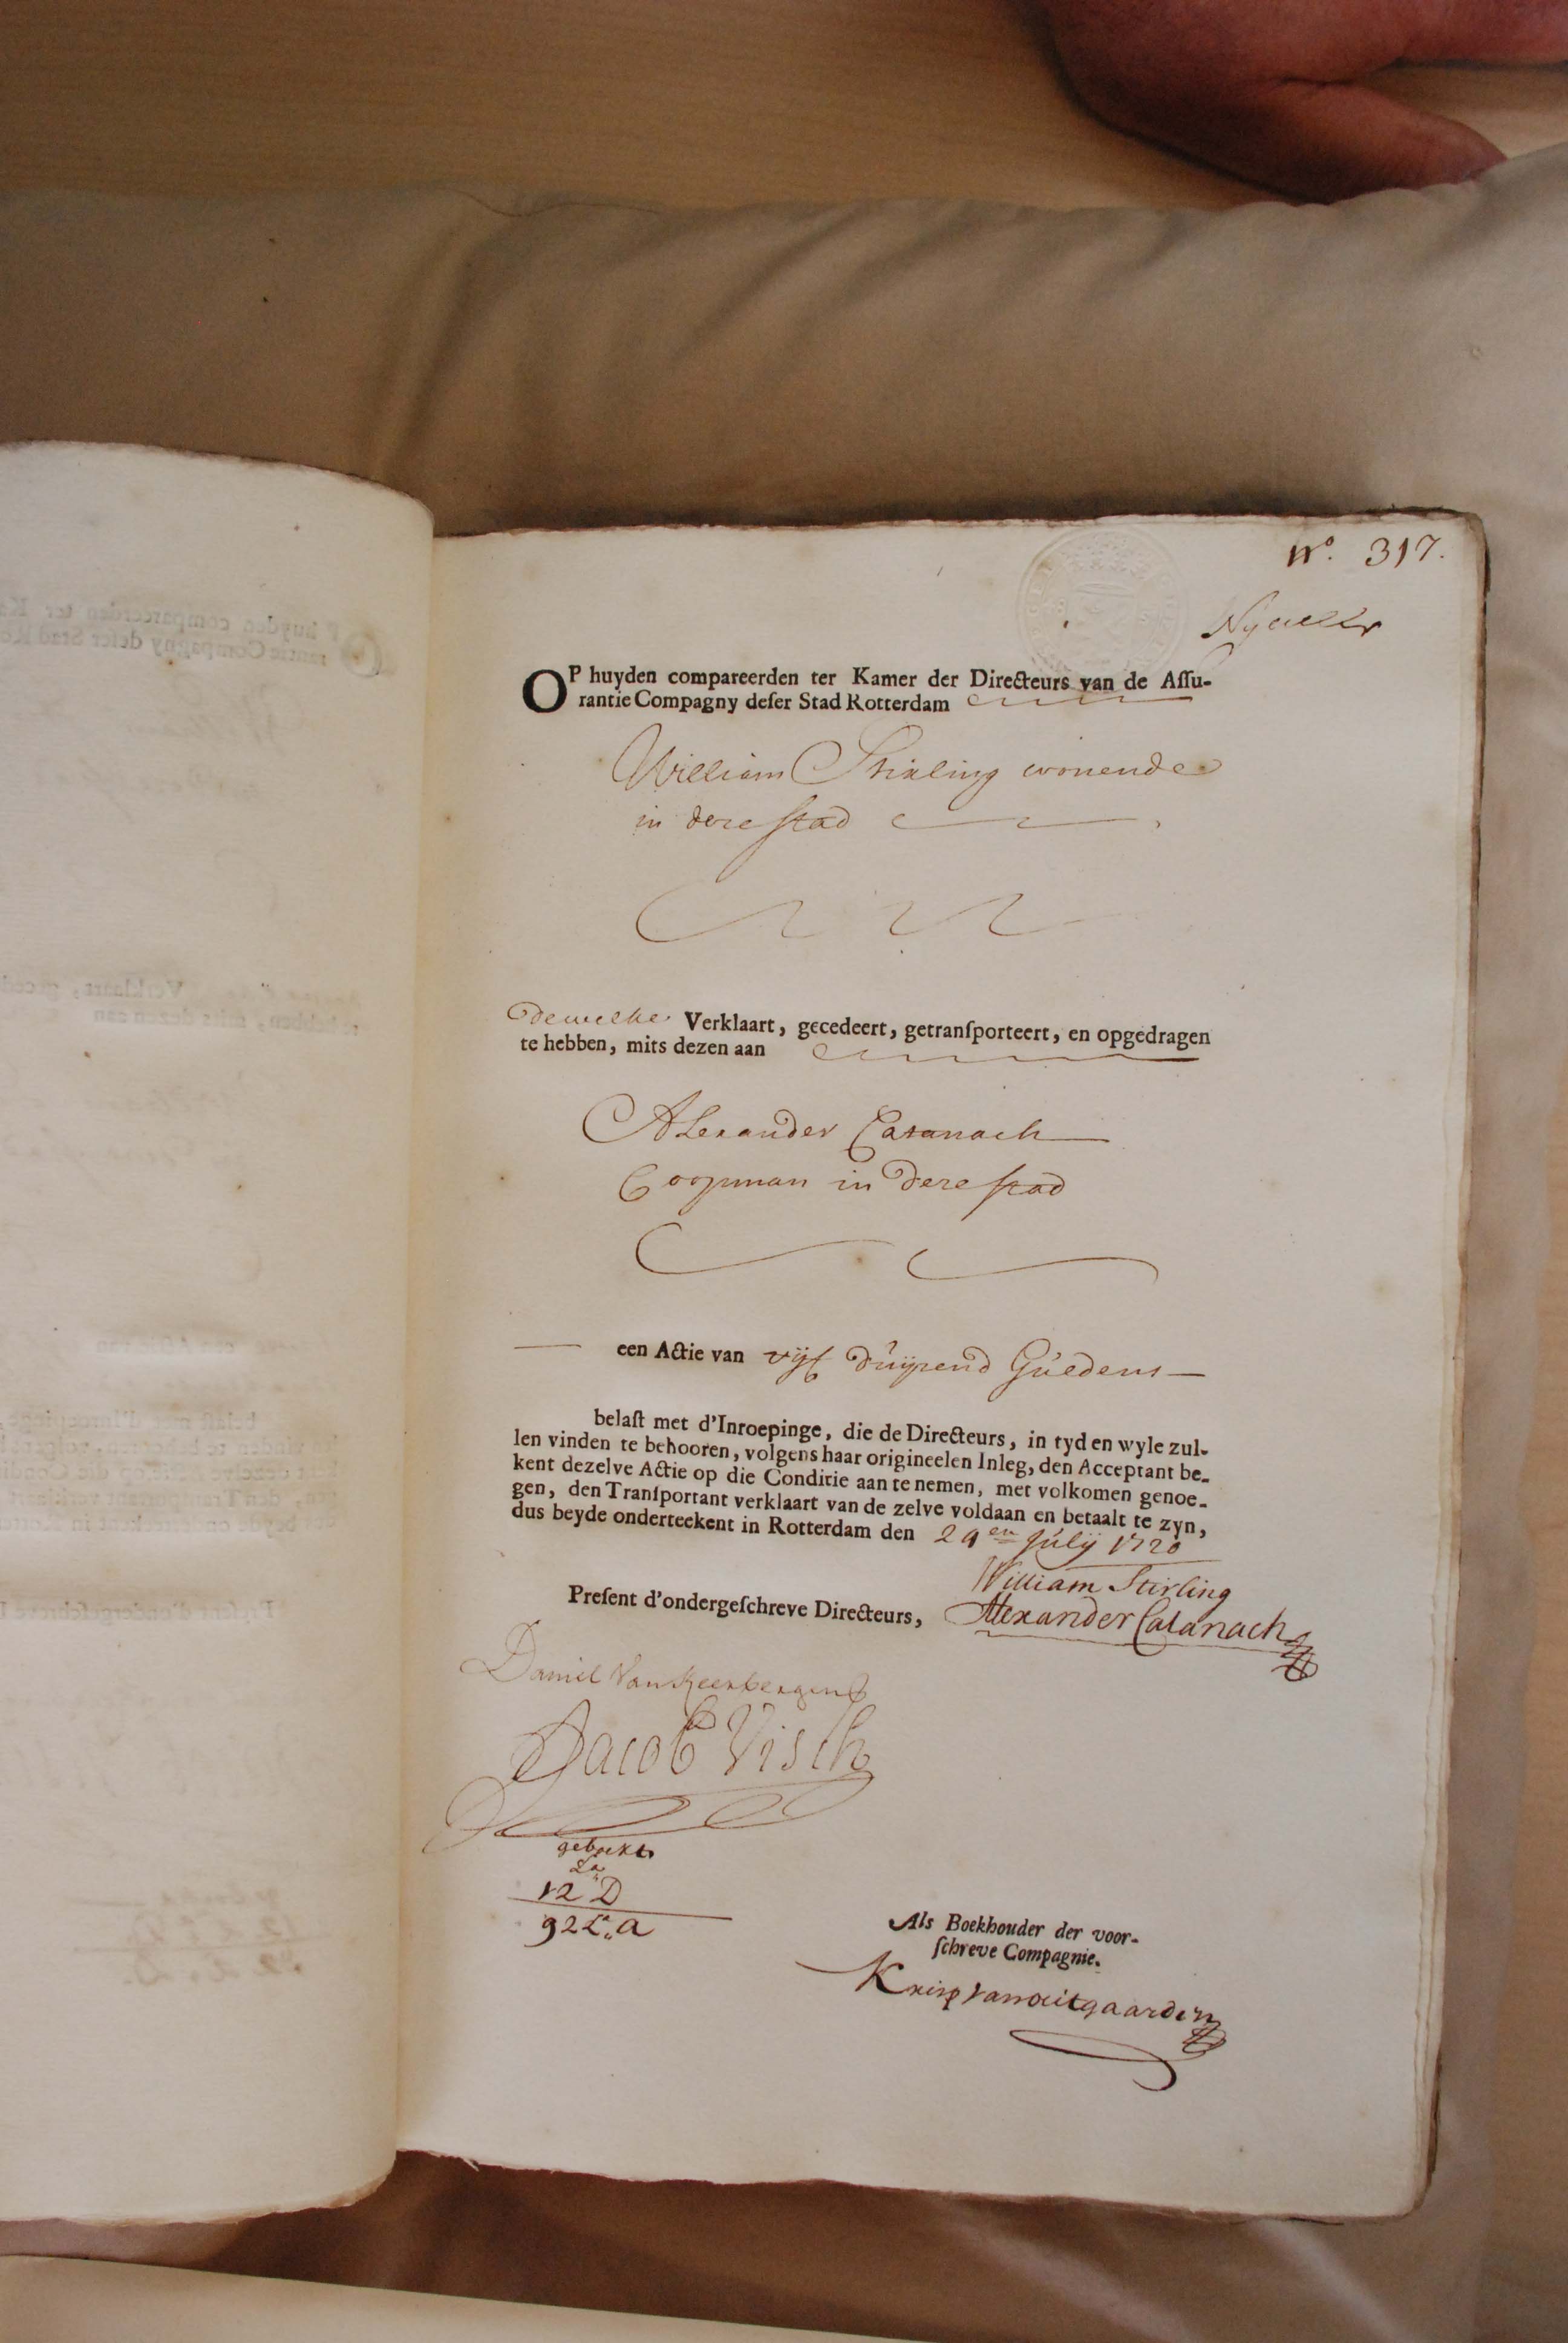 No. 317.
OP huyden compareerden ter Kamer der Directeurs van de Assu-
rantie Compagny deser Stad Rotterdam
William Stirling wonende
in dese stad
dewelke Verklaart, gecedeert, getransporteert, en opgedragen
te hebben, mits dezen aan
Alexander Catanach
Coopman in dese stad
een Actie van vijf duijsend Guldens
belast met d'Inroepinge, die de Directeurs, in tyd en wyle zul-
len vinden te behooren, volgens haar origineelen Inleg, den Acceptant be-
kent dezelve Actie op die Conditie aan te nemen, met volkomen genoe-
gen, den Transportant verklaart van de zelve voldaan en betaalt te zyn,
dus beyde onderteekent in Rotterdam den 29en Julij 1720
William Stirling
Present d'ondergeschreve Directeurs, Alexander Catanach
Daniel Van Keerbergen
Jacob Visch
geboekt
La
12 D
92 La. A
Als Boekhouder der voor-
schreve Compagnie.
Krisp van outgaarden